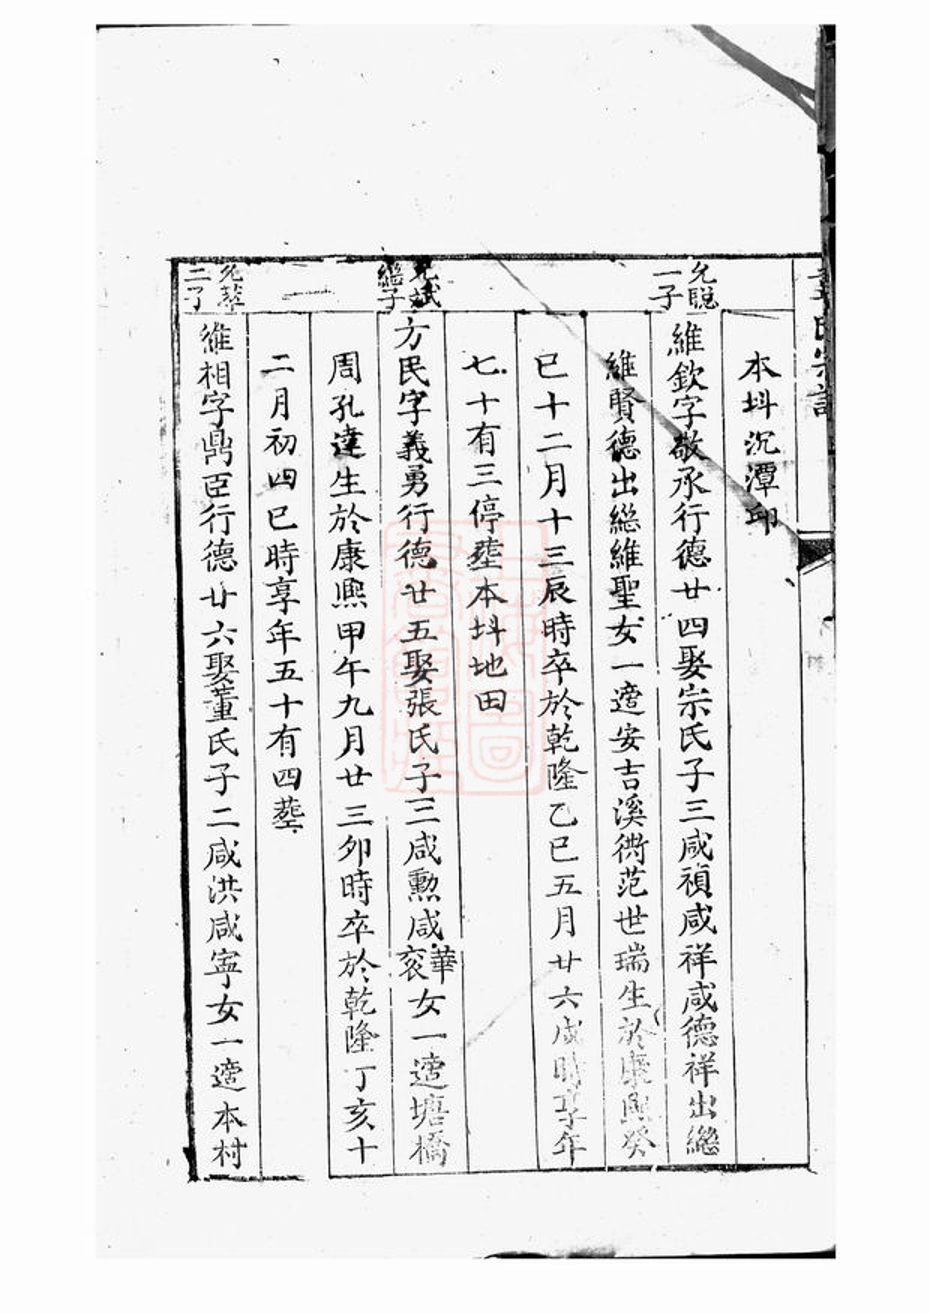 本㘰沉潭邱
允聦
一子
維欽字敬承行德廿四娶宗氏子三咸禎咸祥咸德祥出繼
維賢德出繼維聖女一適安吉溪㣲范世瑞生於康熙癸
巳十二月十三辰時卒於乾隆乙巳五月廿六戌時享年
七十有三停塟本㘰地田
繼子
方民字義勇行德廿五娶張氏子三咸勲咸華咸袞女一適塘橋
周孔達生於康熙甲午九月廿三夘時卒於乾隆丁亥十
二月初四巳時享年五十有四塟
允萃
二子
維相字鼎臣行德廿六娶董氏子二咸洪咸寧女一適本村